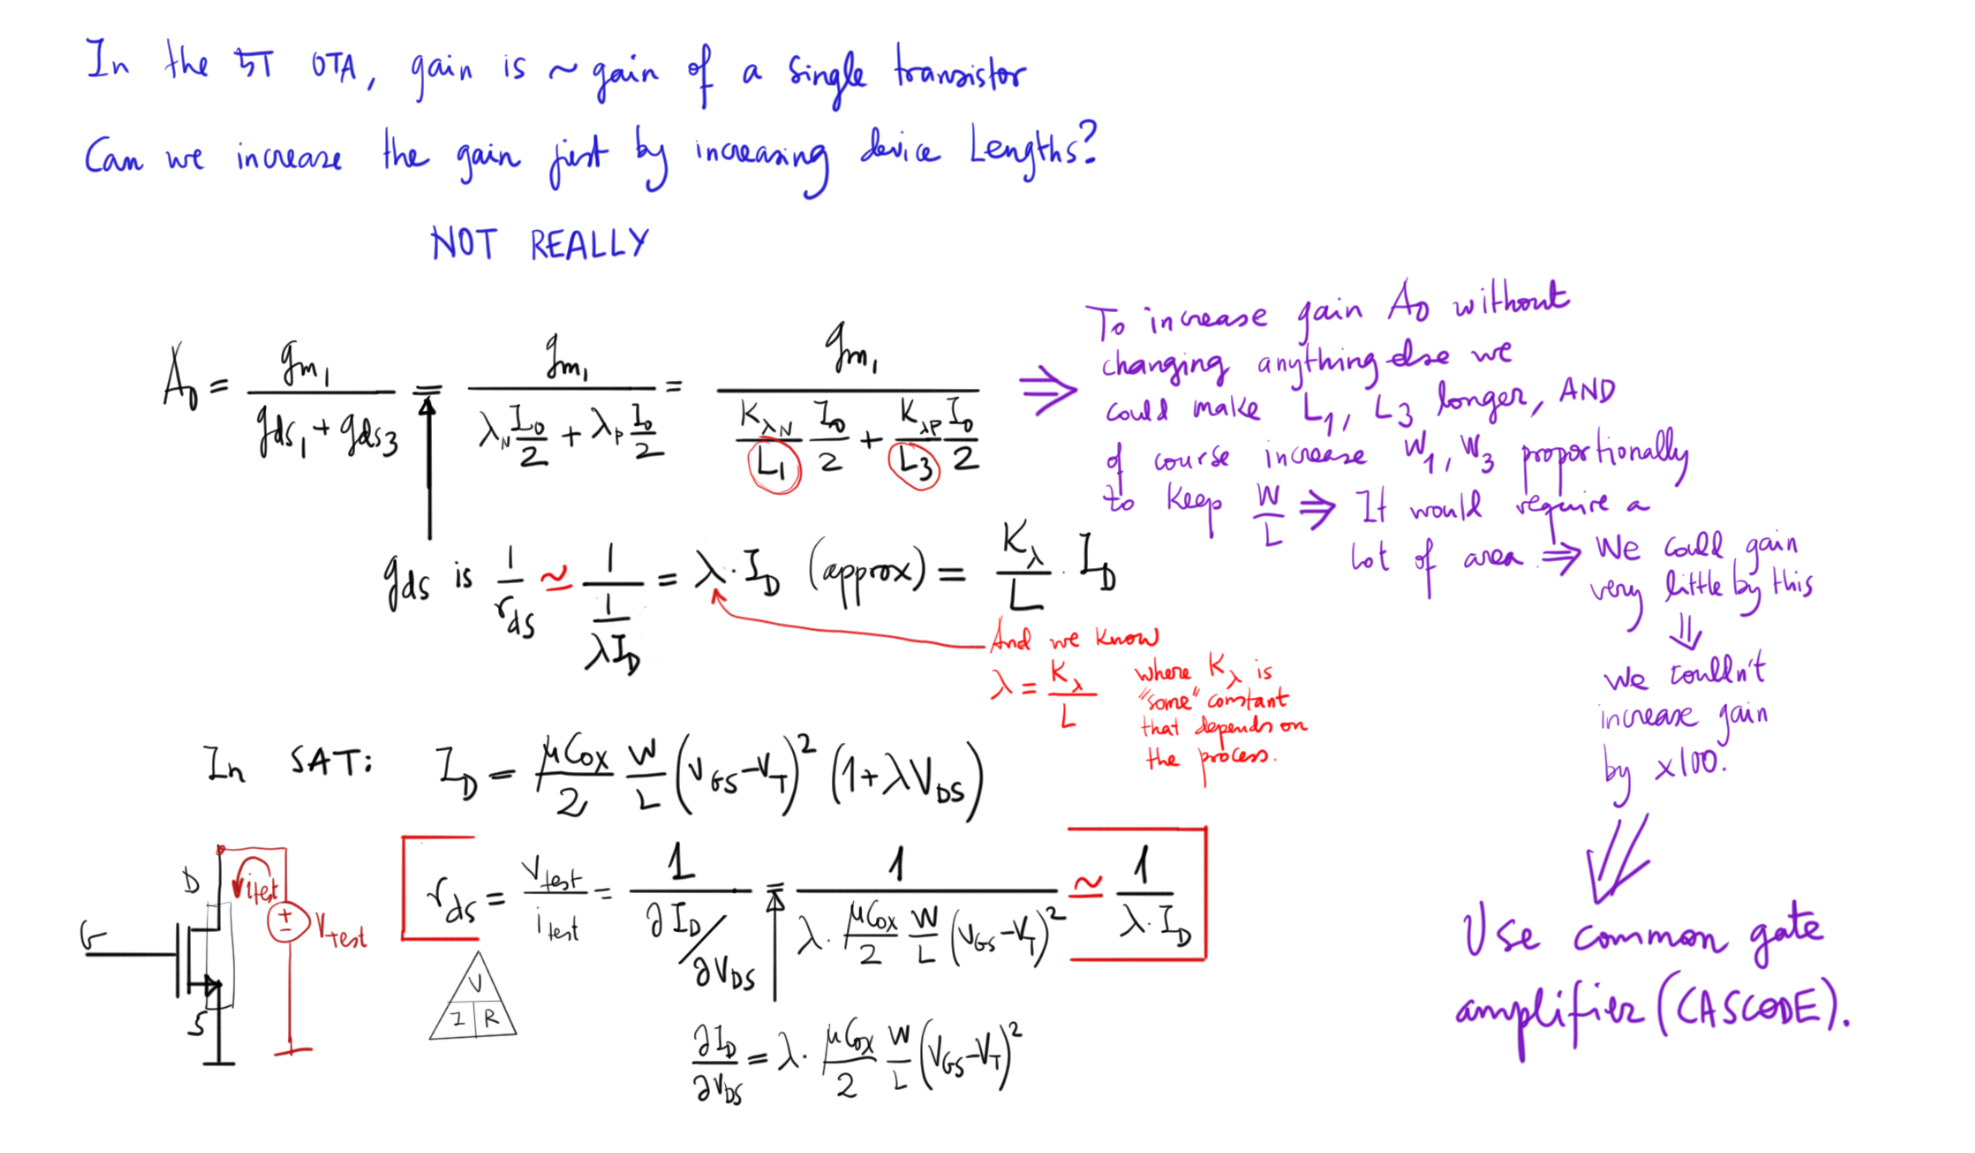 In the 5T OTA, gain is ~ gain of a single transistor
Can we increase the gain just by increasing device Lengths?
NOT REALLY
A₀ = gm₁ / (gds₁ + gds₃) = gm₁ / (λN I₀/2 + λP I₀/2) = gm₁ / (KλN/L₁ I₀/2 + KλP/L₃ I₀/2) ⇒
To increase gain A₀ without
changing anything else we
could make L₁, L₃ longer, AND
of course increase W₁, W₃ proportionally
to keep W/L ⇒ It would require a
lot of area ⇒ We could gain
very little by this
⇓
we couldn't
increase gain
by x100.
Use common gate
amplifier (CASCODE).
gds is 1/rds ≃ 1/(1/(λI_D)) = λ·I_D (approx) = Kλ/L · I_D
And we know
λ = Kλ/L
where Kλ is
"some" constant
that depends on
the process.
In SAT: I_D = μCox/2 W/L (V_GS-V_T)² (1+λV_DS)
rds = Vtest/itest = 1/(∂I_D/∂V_DS) = 1/(λ· μCox/2 W/L (V_GS-V_T)²) ≃ 1/(λ·I_D)
∂I_D/∂V_DS = λ· μCox/2 W/L (V_GS-V_T)²
D
itest
G
Vtest
+
−
S
V
I R